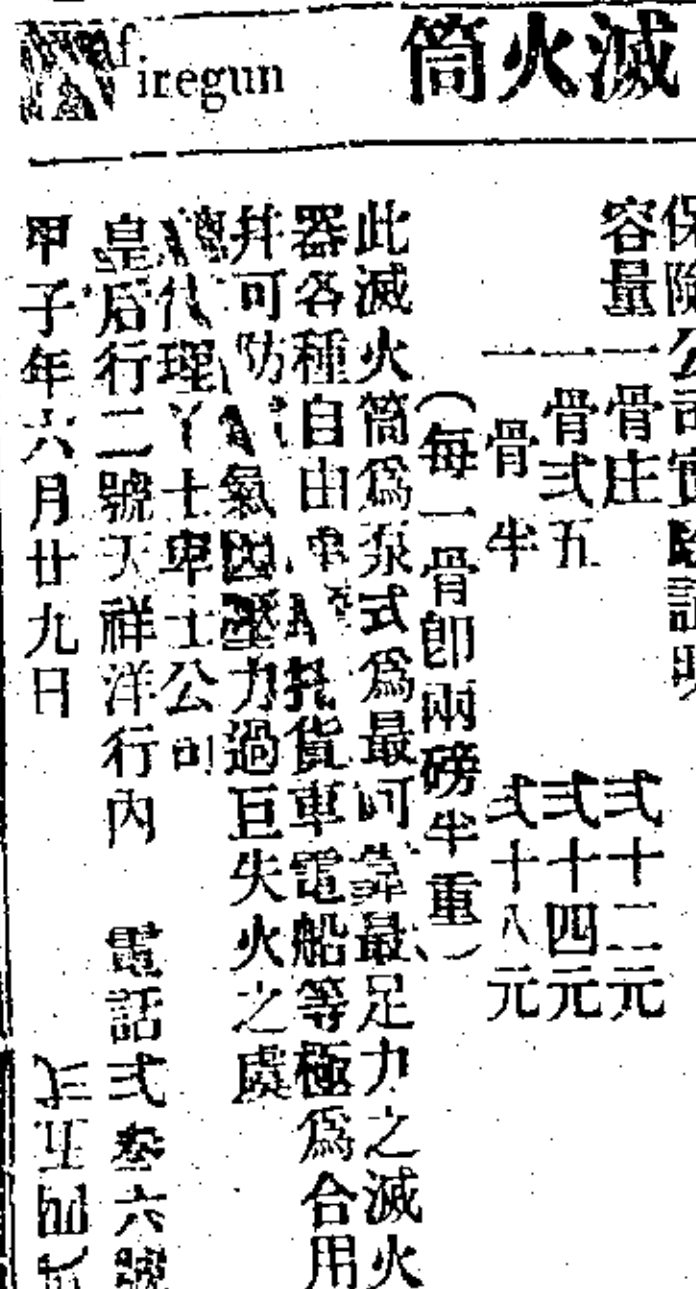 滅火筒
iregun
保險公司實驗証明
容量一骨庄 弍十二元
一骨弍五 弍十四元
一骨半 弍十八元
（每一骨卽兩磅半重）
此滅火筒爲泵式爲最可靠最足力之滅火
器各種自由車 托貨車電船等極爲合用
幷可防 電氣因壓力過巨失火之處
代理丫士卑士公司
皇后行二號天祥洋行內 電話弍叁六號
甲子年六月廿九日